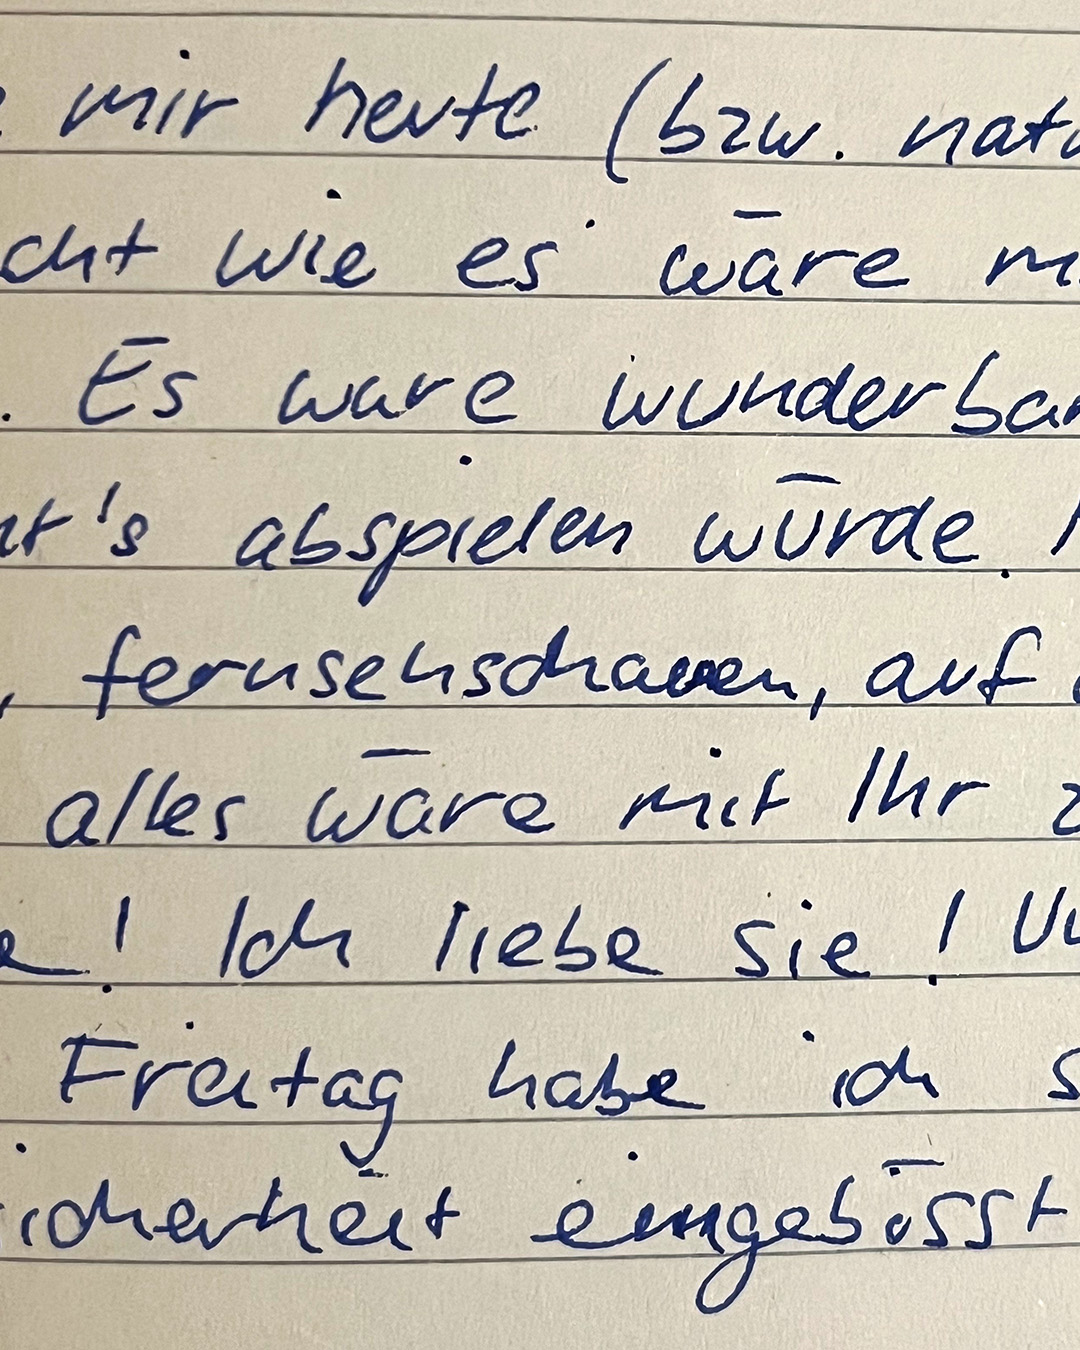 mir heute (bzw. natu
cht wie es wäre m
. Es ware wunderbar
nt's abspielen würde.
, fernsehschauen, auf
alles wäre mit Ihr z
e! Ich liebe sie! Un
Freitag habe ich s
icherheit eingebüsst